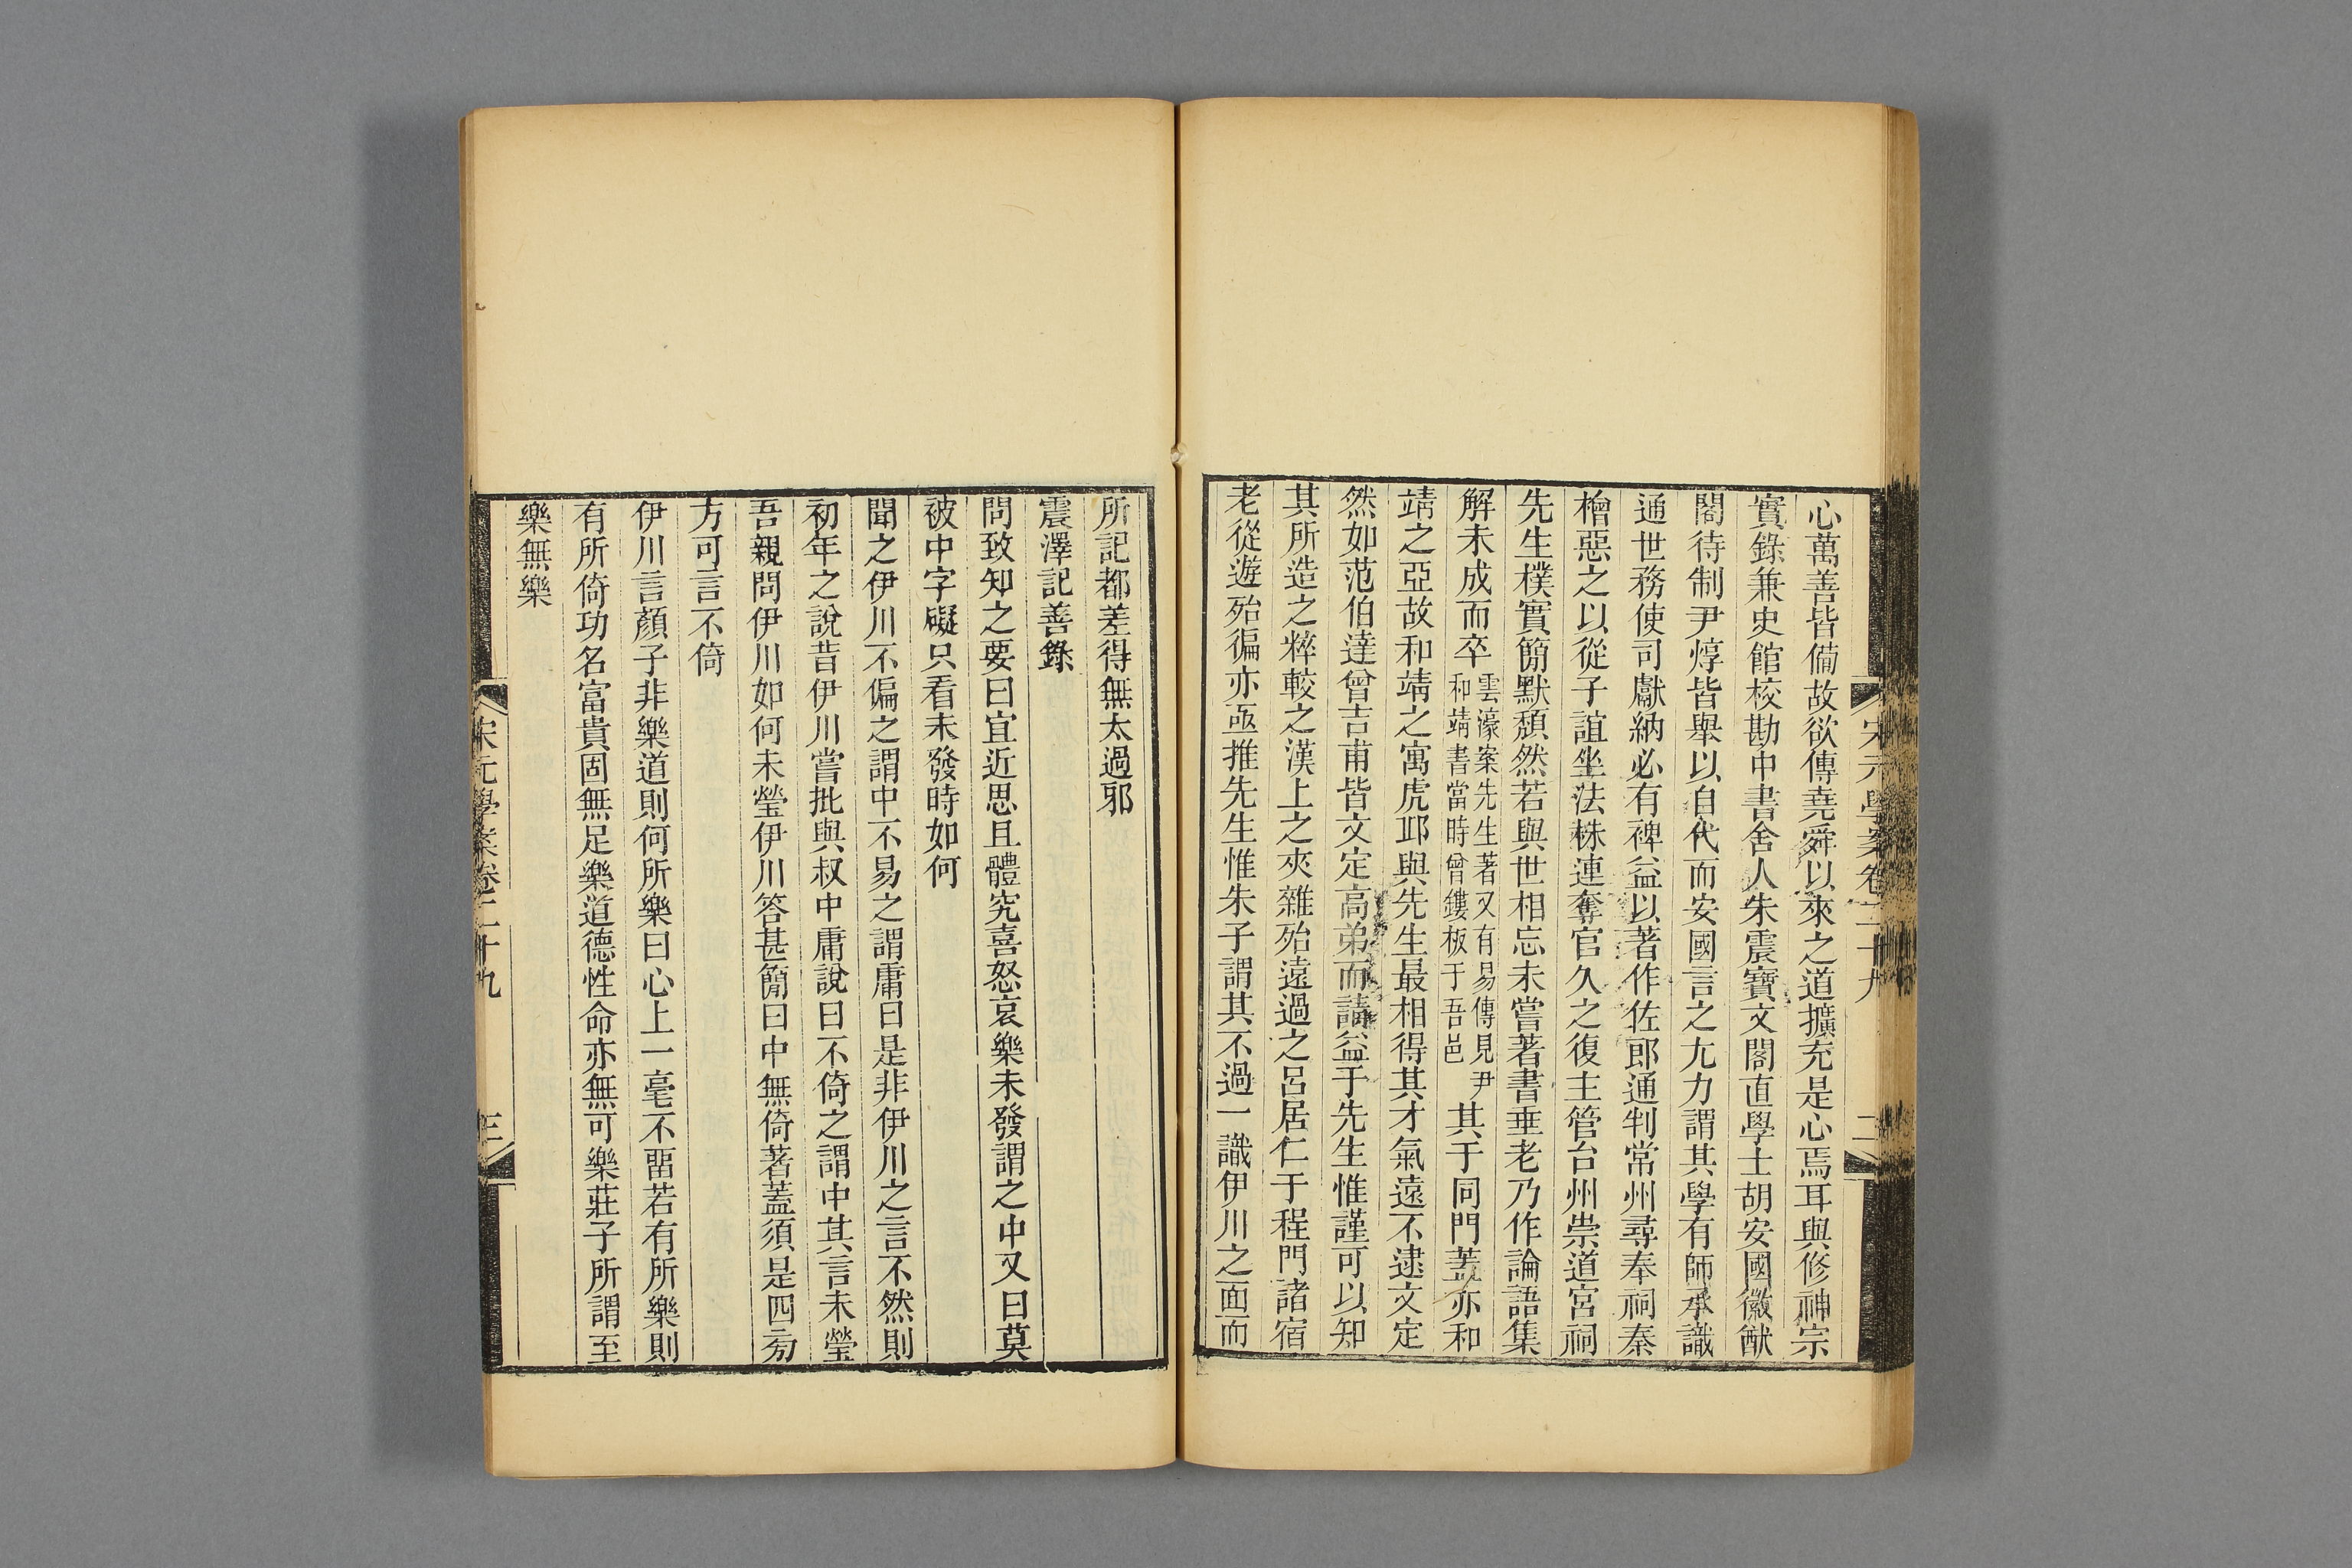 宋元學案卷二十九 二
心萬善皆備故欲傳堯舜以來之道擴充是心焉耳與修神宗
實錄兼史館校勘中書舍人朱震寶文閣直學士胡安國徽猷
閣待制尹焞皆舉以自代而安國言之尢力謂其學有師承識
通世務使司獻納必有裨益以著作佐郎通判常州尋奉祠秦
檜惡之以從子誼坐法株連奪官久之復主管台州崇道宮祠
先生樸實簡默頹然若與世相忘未嘗著書垂老乃作論語集
解未成而卒雲濠案先生著又有易傳見尹和靖書當時曾鏤板于吾邑其于同門蓋亦和
靖之亞故和靖之寓虎邱與先生最相得其才氣遠不逮文定
然如范伯達曾吉甫皆文定高弟而請益于先生惟謹可以知
其所造之粹較之漢上之夾雜殆遠過之呂居仁于程門諸宿
老從遊殆徧亦亟推先生惟朱子謂其不過一識伊川之面而
所記都差得無太過邪
震澤記善錄
問致知之要曰宜近思且體究喜怒哀樂未發謂之中又曰莫
被中字礙只看未發時如何
聞之伊川不偏之謂中不易之謂庸曰是非伊川之言不然則
初年之說昔伊川嘗批與叔中庸說曰不倚之謂中其言未瑩
吾親問伊川如何未瑩伊川答甚簡曰中無倚著蓋須是四旁
方可言不倚
伊川言顏子非樂道則何所樂曰心上一毫不畱若有所樂則
有所倚功名富貴固無足樂道德性命亦無可樂莊子所謂至
樂無樂
宋元學案卷二十九 三